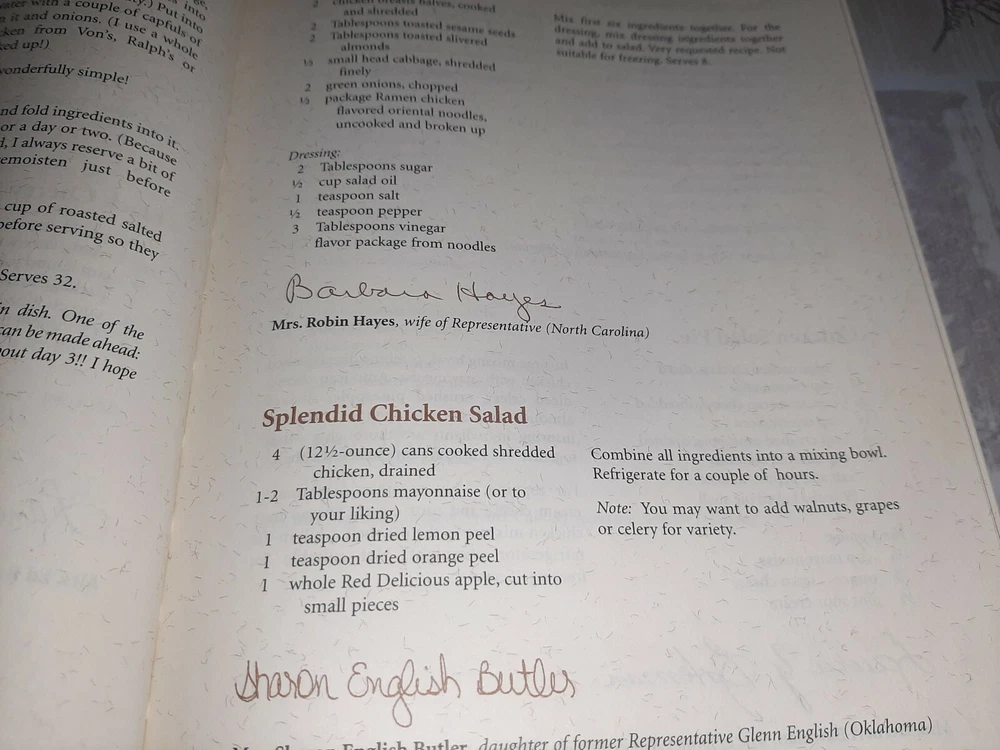 into
.) Put into
water with a couple of capfuls of
n it and onions. (I use a whole
cken from Von's, Ralph's or
ked up!)
wonderfully simple!
nd fold ingredients into it.
or a day or two. (Because
d, I always reserve a bit of
emoisten just before
cup of roasted salted
before serving so they
Serves 32.
n dish. One of the
can be made ahead:
out day 3!! I hope
2 chicken breasts halves, cooked
and shredded
2 Tablespoons toasted sesame seeds
2 Tablespoons toasted slivered
almonds
½ small head cabbage, shredded
finely
2 green onions, chopped
½ package Ramen chicken
flavored oriental noodles,
uncooked and broken up
Mix first six ingredients together. For the
dressing, mix dressing ingredients together
and add to salad. Very requested recipe. Not
suitable for freezing. Serves 8.
Dressing:
2 Tablespoons sugar
½ cup salad oil
1 teaspoon salt
½ teaspoon pepper
3 Tablespoons vinegar
flavor package from noodles
Barbara Hayes
Mrs. Robin Hayes, wife of Representative (North Carolina)
Splendid Chicken Salad
4 (12½-ounce) cans cooked shredded
chicken, drained
1-2 Tablespoons mayonnaise (or to
your liking)
1 teaspoon dried lemon peel
1 teaspoon dried orange peel
1 whole Red Delicious apple, cut into
small pieces
Combine all ingredients into a mixing bowl.
Refrigerate for a couple of hours.
Note: You may want to add walnuts, grapes
or celery for variety.
Sharon English Butler
English Butler, daughter of former Representative Glenn English (Oklahoma)